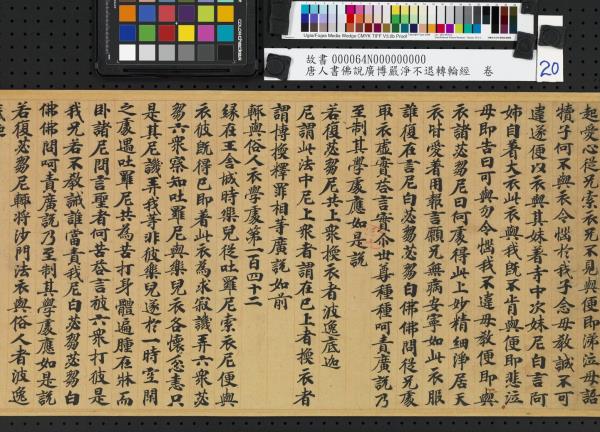 Ugra/Fogra Media Wedge CMYK TIFF V3.0b Proof
故書 000064N000000000
唐人書佛說廣博嚴淨不退轉輪經 卷
20
起愛心從兄索衣兄不見與便即涕泣母語
犢子何不與衣令惱於我子念母教誡不可
違遂便以衣與其妹著寺中次妹尼白言阿
姉自着大衣此衣與我既不肯與便即悲泣
母即告曰可與勿令惱我不違母教便即與
衣諸苾芻尼曰何處得此上妙精細淨居天
衣甘愛著用報言願兄無病安寧如此衣服
誰復在言尼白苾芻苾芻白佛佛問從兄處
取衣虛實答言實尒世尊種種呵責廣說乃
至制其學處應如是說
若復苾芻尼共上衆授衣者波逸底迦
尼謂此法中尼上衆者謂在已上者授衣者
謂博授釋罪相等廣說如前
輙與俗人衣學處第一百四十二
緣在王舍城時樂兒從吐羅尼索衣尼便與
衣彼既得已即着此衣為求寂譏弄六衆苾
芻六衆察知吐羅尼與樂兒衣各懷忿恚只
是其尼譏弄我等非彼樂兒遂於一時空閑
之處遇吐羅尼共為苦打身體遍腫在牀而
卧諸尼問言聖者何苦答言被六衆打彼是
我兄若不教誡誰當責我尼白苾芻苾芻白
佛佛問呵責廣說乃至制其學處應如是說
若復苾芻尼輙將沙門法衣與俗人者波逸